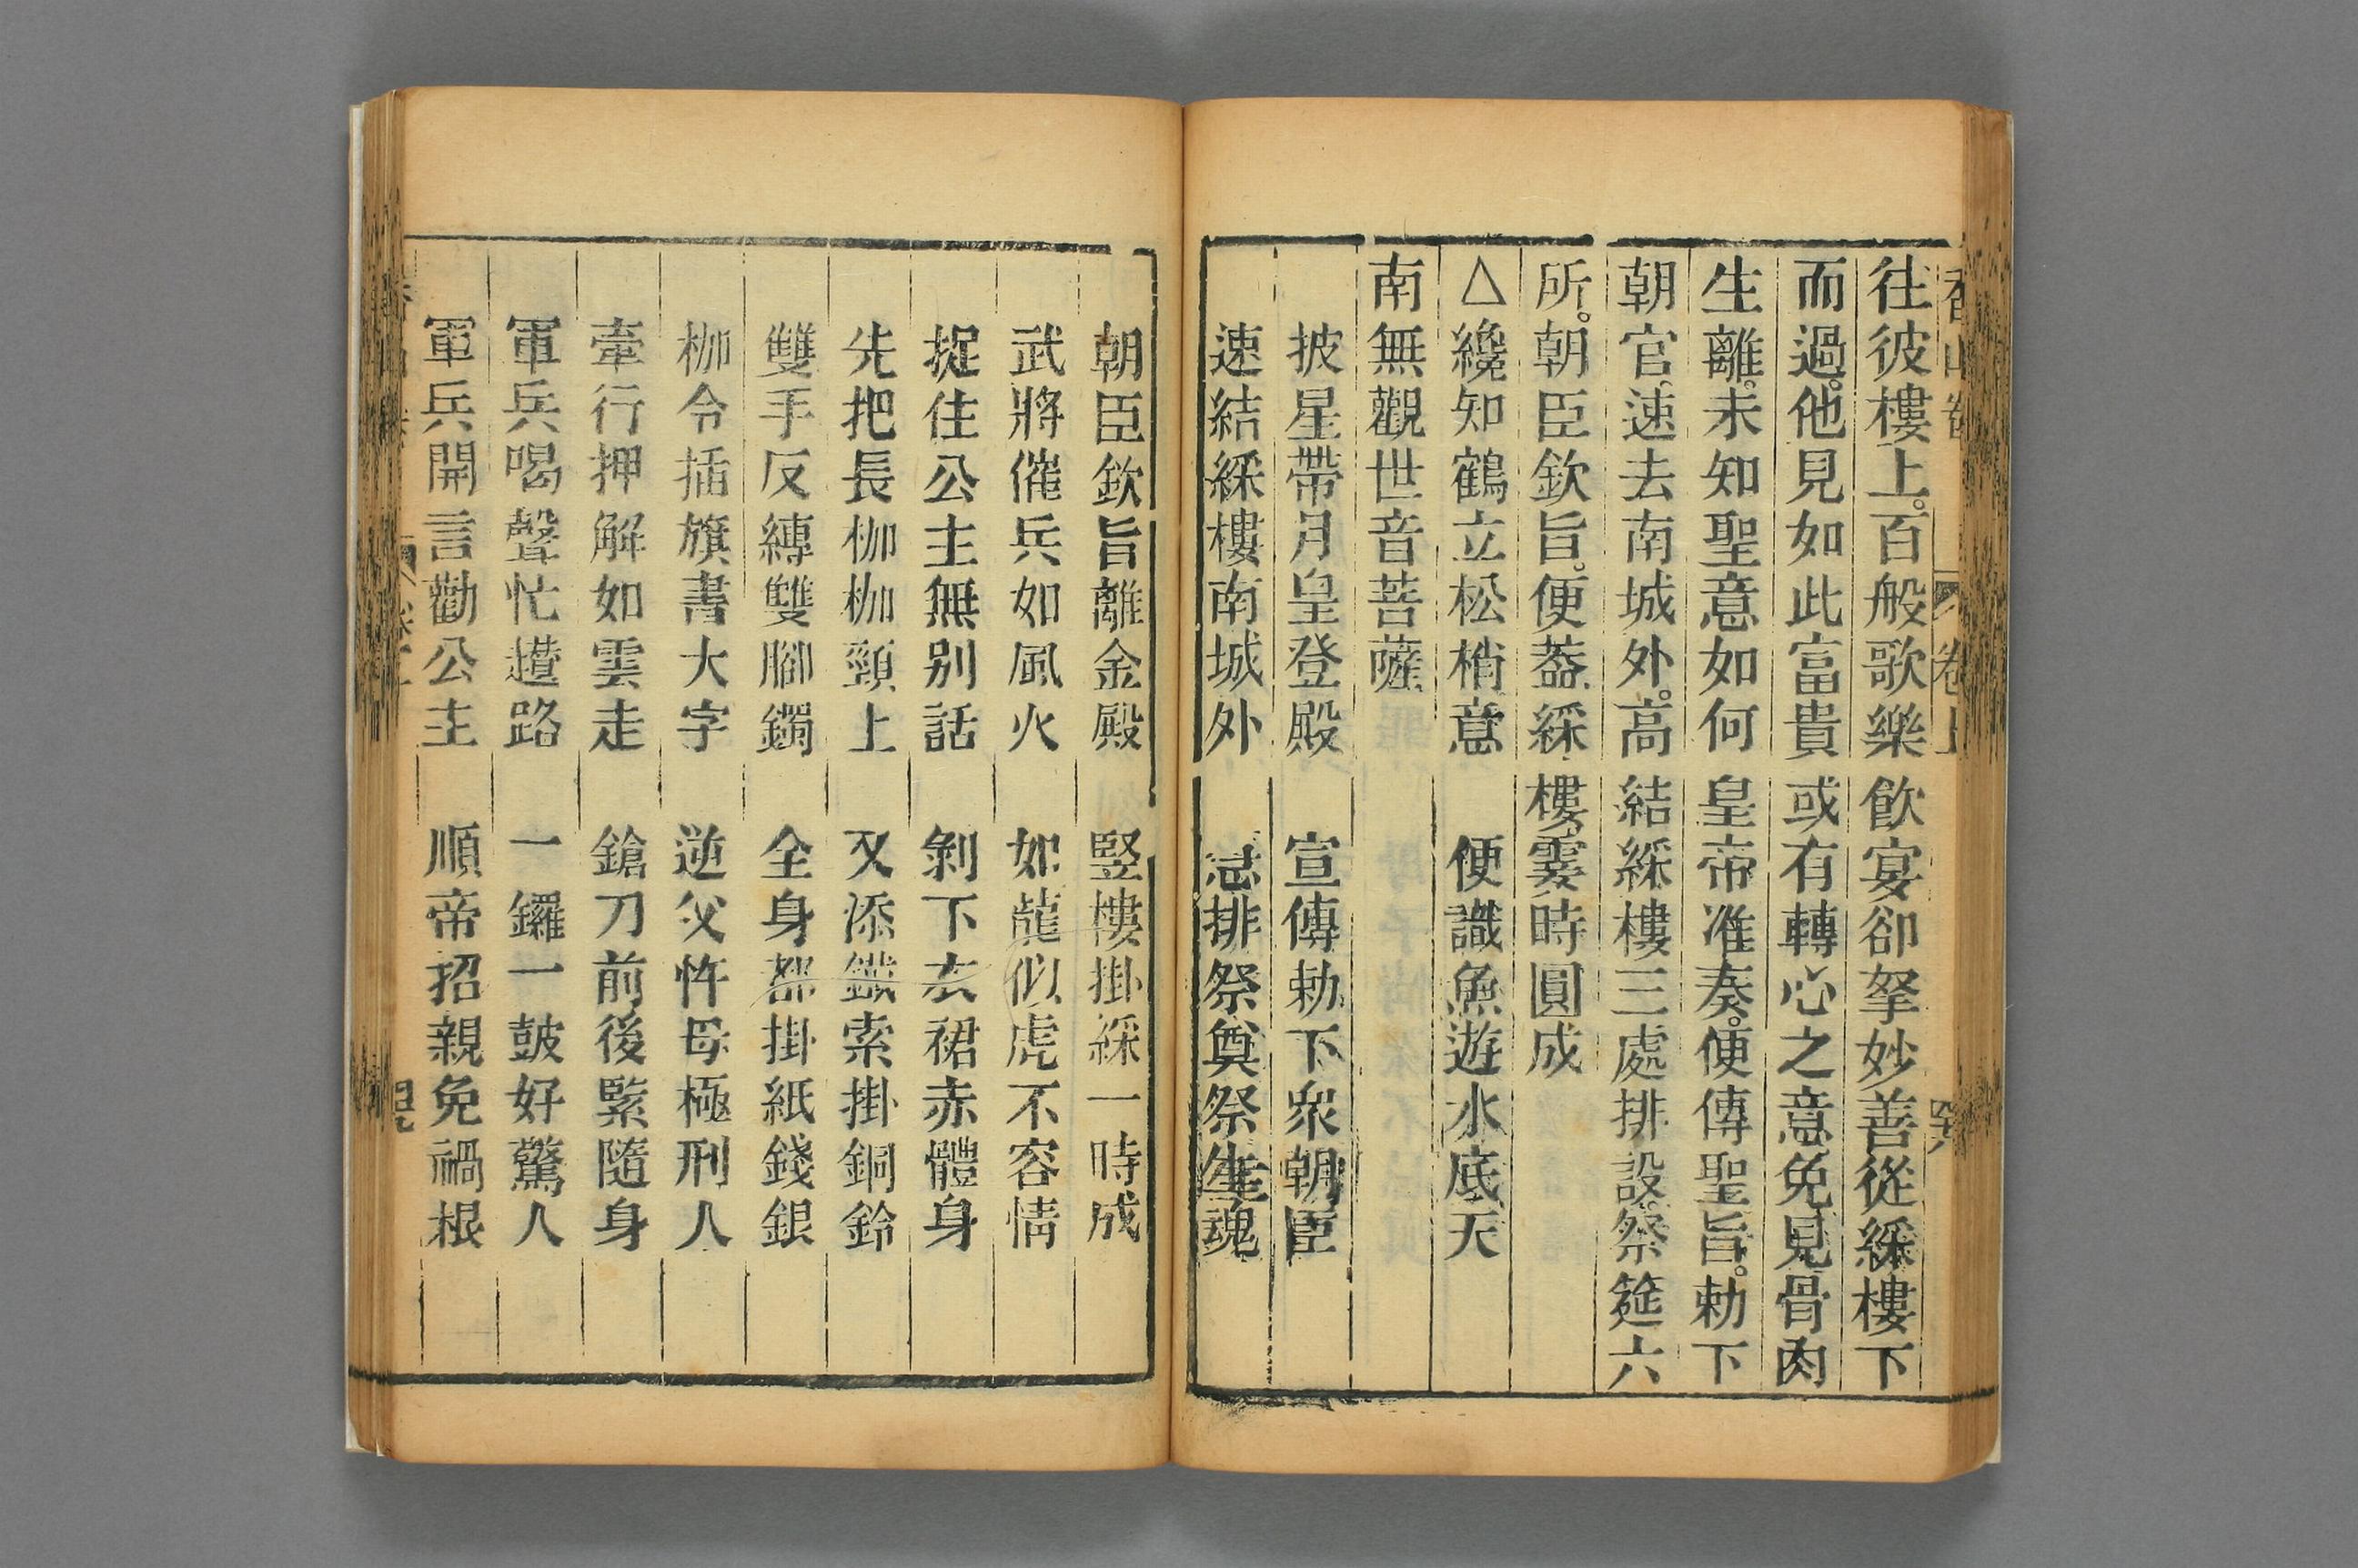 往彼樓上。百般歌樂飲宴卻拏妙善從綵樓下
而過。他見如此富貴或有轉心之意免見骨肉
生離。未知聖意如何皇帝准奏。便傳聖旨。勅下
朝官速去南城外。高結綵樓三處排設祭筵六
所。朝臣欽旨。便葢綵樓霎時圓成
△纔知鶴立松梢意　便識魚遊水底天
南無觀世音菩薩
披星帶月皇登殿　宣傳勅下眾朝臣
速結綵樓南城外　排祭奠祭生魂
朝臣欽旨離金殿　竪樓掛綵一時成
武將催兵如風火　如龍似虎不容情
捉住公主無別話　剝下衣裙赤體身
先把長枷枷頸上　又添鐵索掛銅鈴
雙手反縛雙腳鐲　全身都掛紙錢銀
枷令插旗書大字　逆父忤母極刑人
牽行押解如雲走　鎗刀前後緊隨身
軍兵喝聲忙遶路　一鑼一鼓好驚人
軍兵開言勸公主　順帝招親免禍根